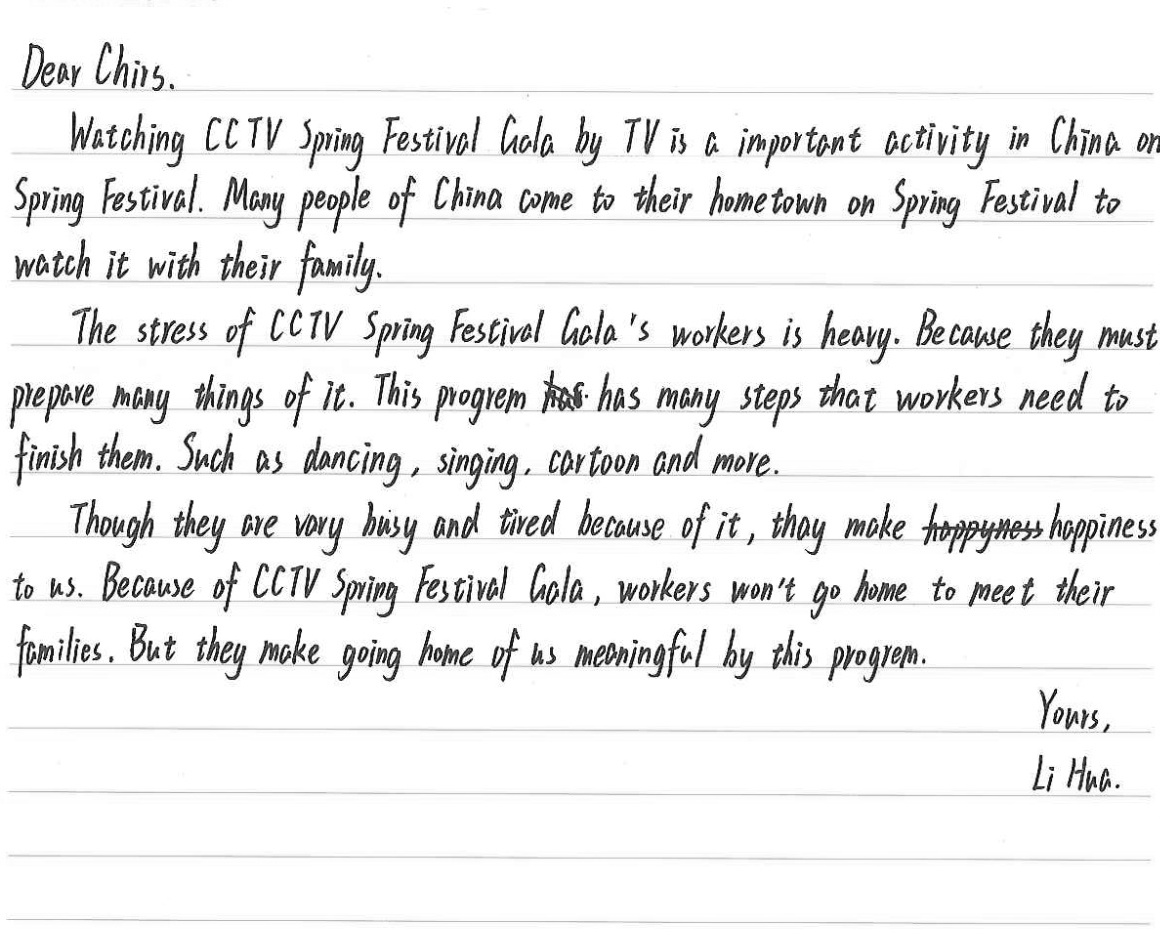 Dear Chirs.
Watching CCTV Spring Festival Gala by TV is a important activity in China on
Spring Festival. Many people of China come to their hometown on Spring Festival to
watch it with their family.
The stress of CCTV Spring Festival Gala's workers is heavy. Because they must
prepare many things of it. This progrem has has many steps that workers need to
finish them. Such as dancing, singing, cartoon and more.
Though they are vary busy and tired because of it, thay make happyness happiness
to us. Because of CCTV Spring Festival Gala, workers won't go home to meet their
families. But they make going home of us meaningful by this progrem.
Yours,
Li Hua.